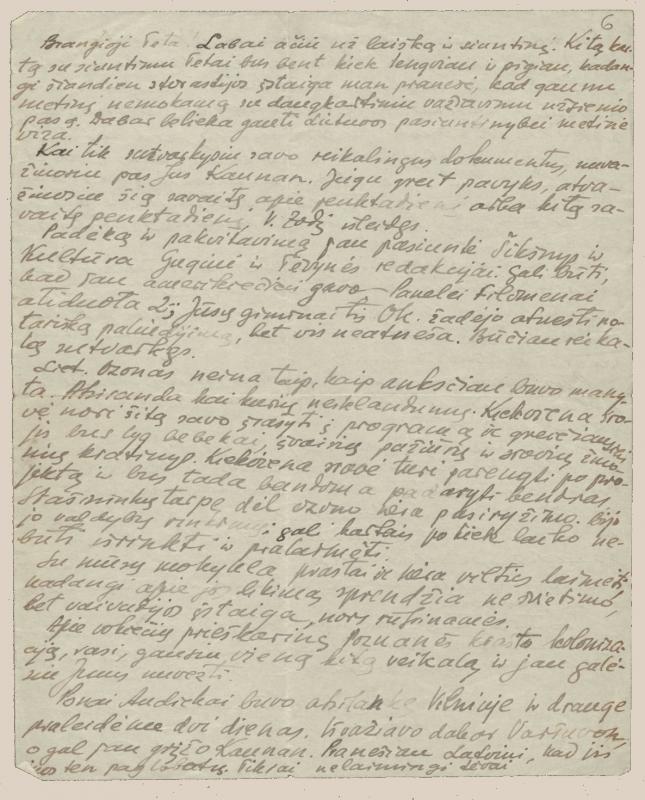 6
Brangioji Teta! Labai ačiu už laišką ir siuntinį. Kitą kar-
tą su siuntimu Tetai bus bent kiek lengviau ir pigiau, kadan-
gi šiandien įstaiga man pranešė, kad gaunu
metinį nemokamą su dangkartiniu važiavimu užsienio
pasą. Dabar belieka gauti Lietuvos pasiuntinybei metinė
viza.
Kai tik sutvarkysiu savo reikalingus dokumentus, nuva-
žiuosiu pas Jus Kaunan. Jeigu greit pavyks, atva-
žiuosiu šią savaitę apie penktadienį arba kitą sa-
vaitę penktadienį, V. Žodį išleidęs.
Padėką ir pakvitavimą jau pasiuntė Šikšnys ir
Kultūra Guginė ir Tėvynės redakcijai. Gali būti,
kad jau amerikiečiai gavo. Panelei Filomenai
atiduota 2; Jūsų giminaitis Ok. žadėjo atnešti no-
tarišką paliudijimą, bet vis neatneša. Būčiau reika-
lą sutvarkęs.
Liet. Ozonas neina taip, kaip anksčiau buvo many-
ta. Atsiranda kai kurių nesklandumų. Kiekviena sro-
vė nori šitą savo įrašyti į programą ir greičiausiai
jis bus lyg bebekai, įvairių pažiūrų ir srovių žmo-
nių kratinys. Kiekviena srovė turi parengti po pro-
jektą ir bus tada bandoma padaryti bendras.
Stašininkų tarpe dėl ozono nėra pasiryžimo. Bijo
jo valdybos rinkimų; gali kartais po kiek laiko ne-
būti išrinkti ir pralaimėti.
Su mūsų mokykla prastai ir nėra vilties laimėti,
kadangi apie jos likimą sprendžia ne švietimo,
bet vaivadijos įstaiga, nors rūpinamės.
Apie vokiečių prieškarinę Poznanės krašto koloniza-
ciją, rasi, gausiu vieną kitą veikalą ir jau galė-
siu Jums nuvežti.
Ponai Audickai buvo atsilankę Vilniuje ir drauge
praleidome dvi dienas. Išvažiavo dabar Varšuvon,
o gal jau grįžo Kaunan. Pranešiau Ladovui, kad jis
juos ten paglobotų. Tikrai nelaimingi tėvai